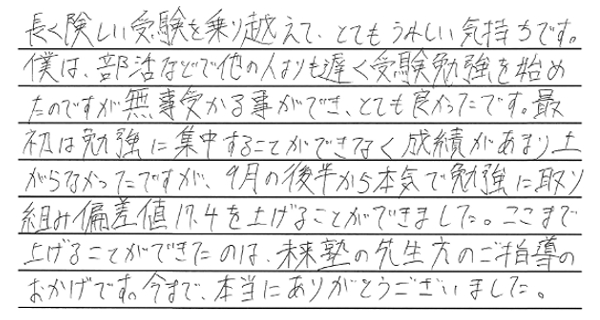 長く険しい受験を乗り越えて、とてもうれしい気持ちです。
僕は、部活などで他の人よりも遅く受験勉強を始め
たのですが無事受かる事ができ、とても良かったです。最
初は勉強に集中することができなく成績があまり上
がらなかったですが、9月の後半から本気で勉強に取り
組み偏差値17.4を上げることができました。ここまで
上げることができたのは、未来塾の先生方のご指導の
おかげです。今まで、本当にありがとうございました。